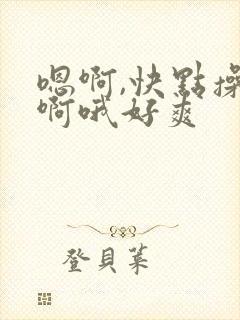 嗯啊,快點操
啊哦好爽
登貝葉